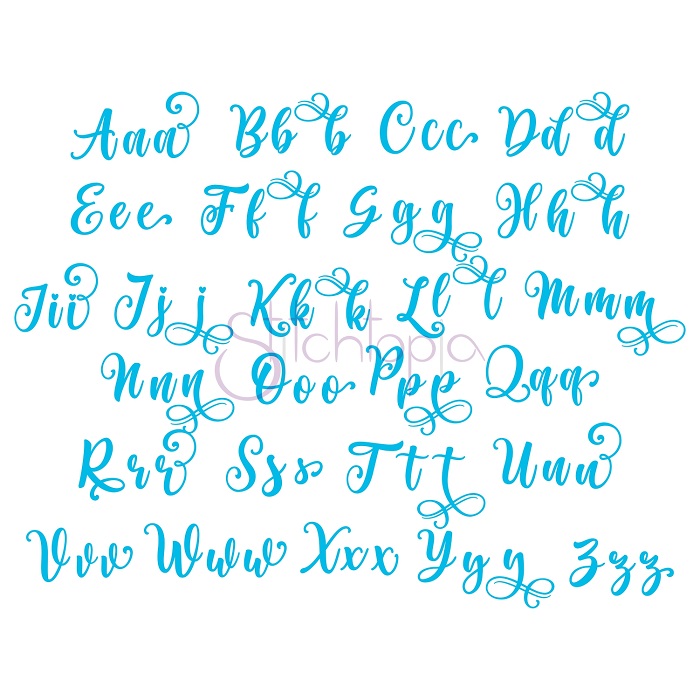 Aaa Bbb Ccc Ddd
Eee Fff Ggg Hhh
Iii Jjj Kkk Lll Mmm
Stitchtopia
Nnn Ooo Ppp Qqq
Rrr Sss Ttt Uuu
Vvv Www Xxx Yyy Zzz